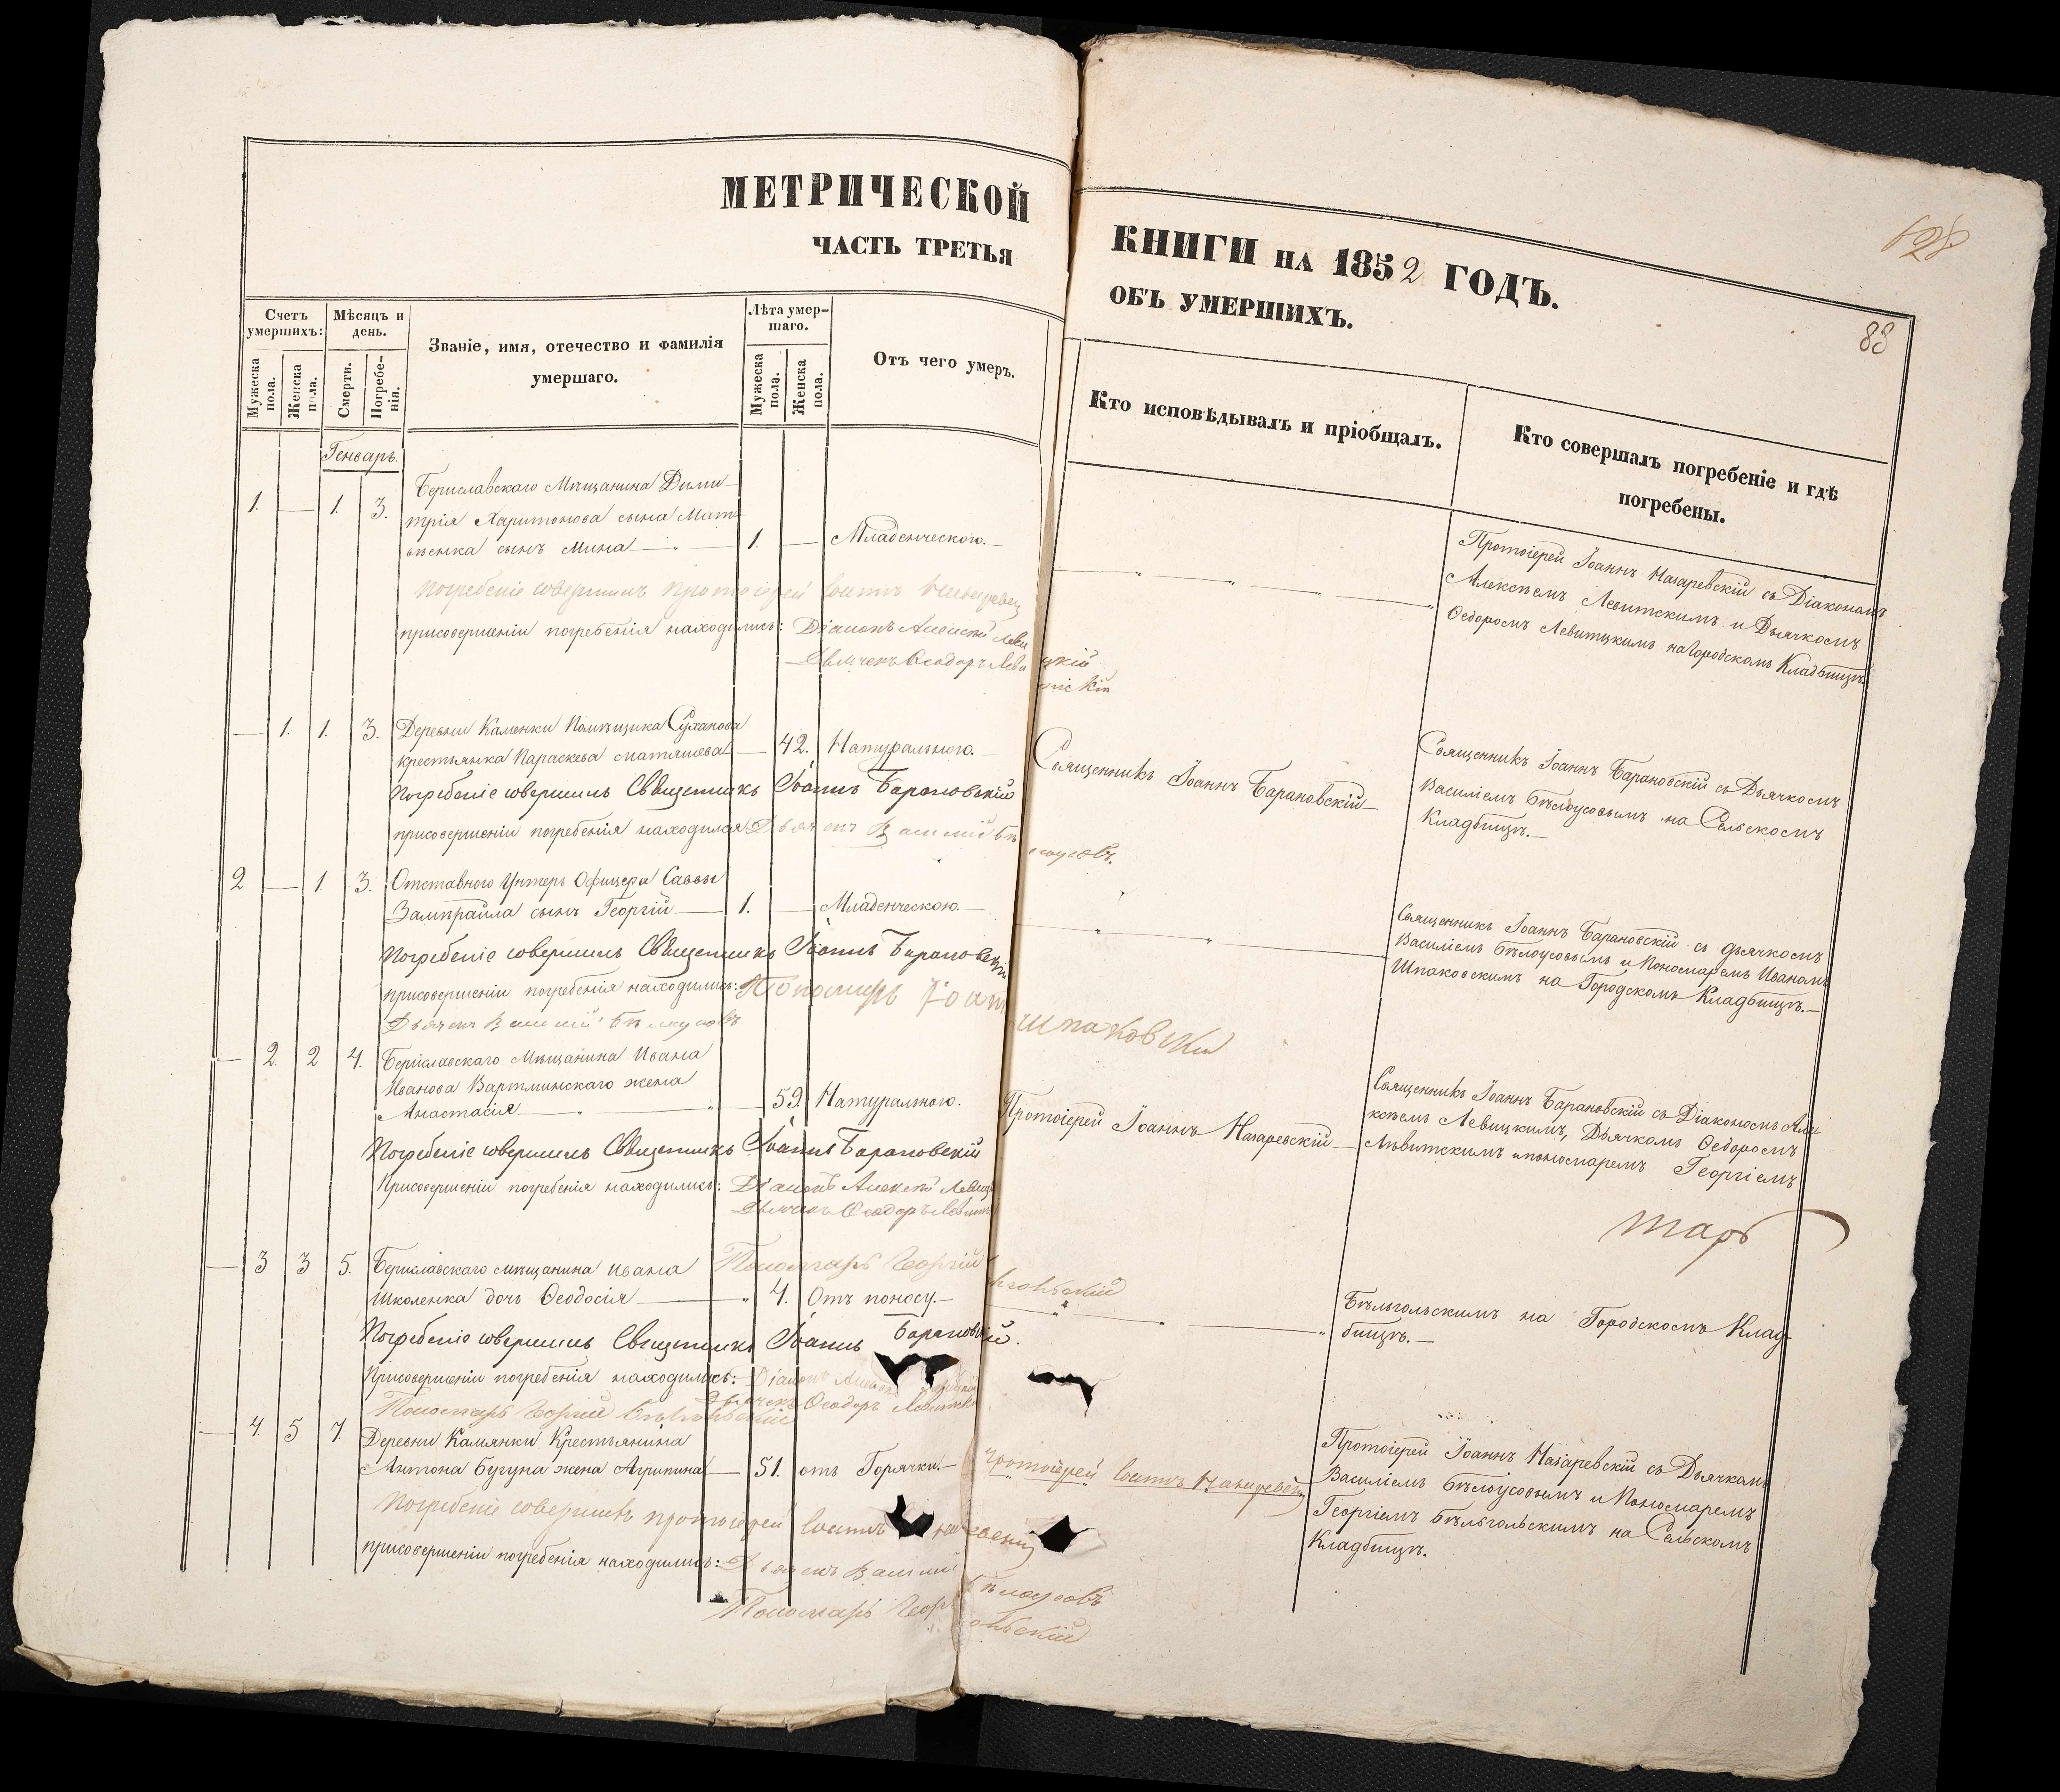 МЕТРИЧЕСКОЙ
ЧАСТЬ ТРЕТЬЯ
Счетъ умершихъ:
Мужеска пола.
Женска пола.
Мѣсяцъ и день.
Смерти.
Погребенія.
Званіе, имя, отечество и фамилія
умершаго.
Лѣта умер-
шаго.
Мужеска пола.
Женска пола.
Отъ чего умеръ.
Генварь.
1. — 1. 3. Бериславскаго Мѣщанина Дими
трія Харитонова сына Мат
вѣенка сынъ Мина — 1. — Младенческого. —
Погребеніе совершилъ протоіерей
присовершеніи погребенія находились: Діаконъ Алексѣй Леви
цкій
Дьячекъ Ѳеодоръ Леви
тскій
— 1. 1. 3. Деревни Каменки Помѣщика Суханова
крестьянка Параскева — 42. Натурального.
Погребеніе совершилъ Священникъ Іоаннъ Барановскій
присовершеніи погребенія находился Дьячекъ Василій Бѣ
лоусовъ.
2 — 1. 3. Отставного Унтеръ Офицера Саввы
сынъ Георгій — 1. — Младенческою. —
Погребеніе совершилъ Священникъ Іоаннъ Барановскій
присовершеніи погребенія находились: Пономарь Іоан
Шпаковскій
Дьячекъ Василій Бѣлоусовъ
— 2. 2 4. Бериславскаго Мѣщанина Ивана
Иванова Вартминскаго жена
Анастасія — 59. Натурального.
Погребеніе совершилъ Священникъ Іоаннъ Барановскій
Присовершеніи погребенія находились: Діаконъ Алексѣй Левиц
Дьячекъ Ѳеодоръ Левит
Пономарь Георгій
— 3 3 5. Бериславскаго мѣщанина Ивана
Школенка дочь Ѳеодосія — 4. Отъ поносу. —
Погребеніе совершилъ Священникъ Іоаннъ Барановскій.
Присовершеніи погребенія находились: Діаконъ
Дьячекъ Ѳеодоръ
Пономарь Георгій
— 4. 5 7. Деревни Камянки Крестьянина
Антона Бугуна жена Агрипина — 51. отъ Горячки. —
Погребеніе совершилъ протоіерей
присовершеніи погребенія находились: Дьячекъ Василій
Бѣлоусовъ
Пономарь Геор
КНИГИ НА 1852 ГОДЪ.
ОБЪ УМЕРШИХЪ.
83
Кто исповѣдывалъ и пріобщалъ.
Кто совершалъ погребеніе и гдѣ
погребены.
Протоіерей Іоаннъ Назаревскій съ Діакономъ
Алексѣемъ Левитскимъ и Дьячкомъ
Ѳедоромъ Левитцкимъ на Городскомъ Кладбищѣ.
Священникъ Іоаннъ Барановскій —
Священникъ Іоаннъ Барановскій съ Дьячкомъ
Василіемъ Бѣлоусовымъ на Сельскомъ
Кладбищѣ. —
Священникъ Іоаннъ Барановскій съ дьячкомъ
Василіемъ Бѣлоусовымъ и Пономаремъ Иваномъ
Шпаковскимъ на Городскомъ Кладбищѣ. —
Протоіерей Іоаннъ Назаревскій —
Священникъ Іоаннъ Барановскій съ Діакономъ Але
ксѣемъ Левицкимъ, Дьячкомъ Ѳедоромъ
Лѣвитскимъ и пономаремъ Георгіемъ
Бѣльгольскимъ на Городскомъ Клад-
бищѣ. —
Протоіерей
Протоіерей Іоаннъ Назаревскій съ Дьячкомъ
Василіемъ Бѣлоусовымъ и Пономаремъ
Георгіемъ Бѣльгольскимъ на Сельскомъ
Кладбищѣ.